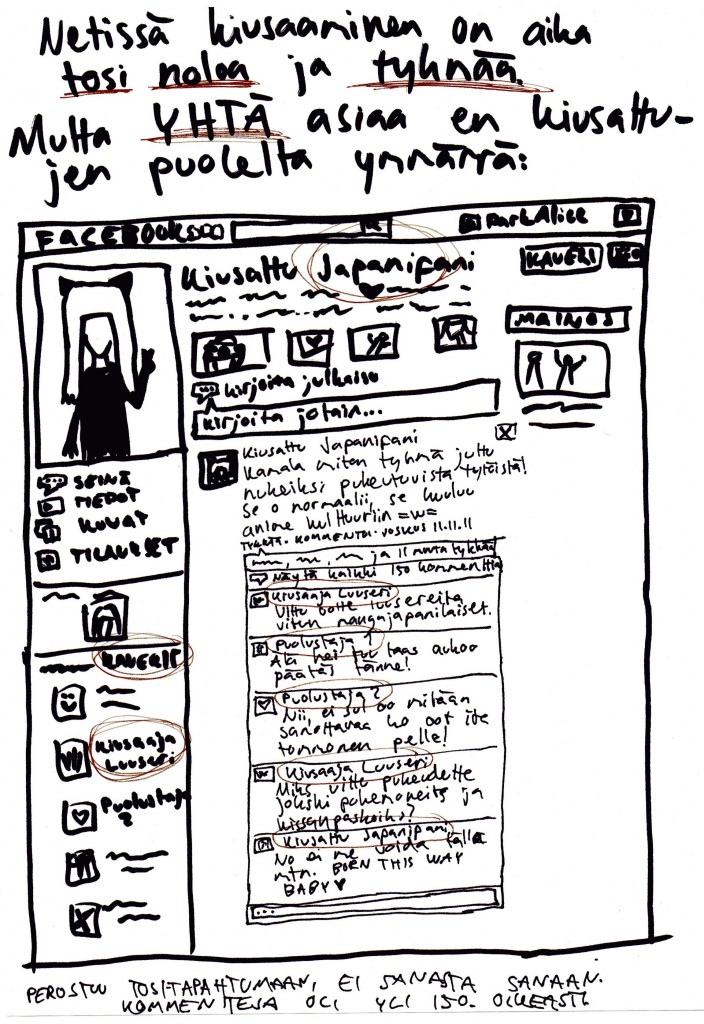 Netissä kiusaaminen on aika
tosi noloa ja tyhmää.
Mutta YHTÄ asiaa en kiusattu-
jen puolelta ymmärrä:
FACEBOOK
ParkAlice
Kiusattu Japanifani
KAVERI
MAINOS
kirjoita julkaisu
kirjoita jotain...
SEINÄ
TIEDOT
KUVAT
TILAUKSET
Kiusattu Japanifani
Kamala miten tyhmä juttu
nukeiksi pukeutuvista tytöistä!
Se o normaalii, se kuuluu
anime kulttuuriin =w=
TYKKÄÄ. KOMMENTOI. JOSKUS 11.11.11
ja 11 muuta tykkää
Näytä kaikki 150 kommenttia
Kiusaaja Luuseri
Vittu ootte luusereita
vitun mangajapanilaiset.
Puolustaja 1
Älä hei tuu taas aukoo
päätäs tänne!
Puolustaja 2
Nii, ei sul oo mitään
sanottavaa ko oot ite
tommonen pelle!
Kiusaaja Luuseri
Miks vittu pukeudutte
jokski pokemoneiks ja
kissanpaskoiks?
Kiusattu Japanifani
No ei me voida tälle
mtn. BORN THIS WAY
BABY ♥
...
KAVERIT
Kiusaaja
Luuseri
Puolustaja
2
PERUSTUU TOSITAPAHTUMAAN, EI SANASTA SANAAN.
KOMMENTEJA OLI YLI 150. OIKEASTI.